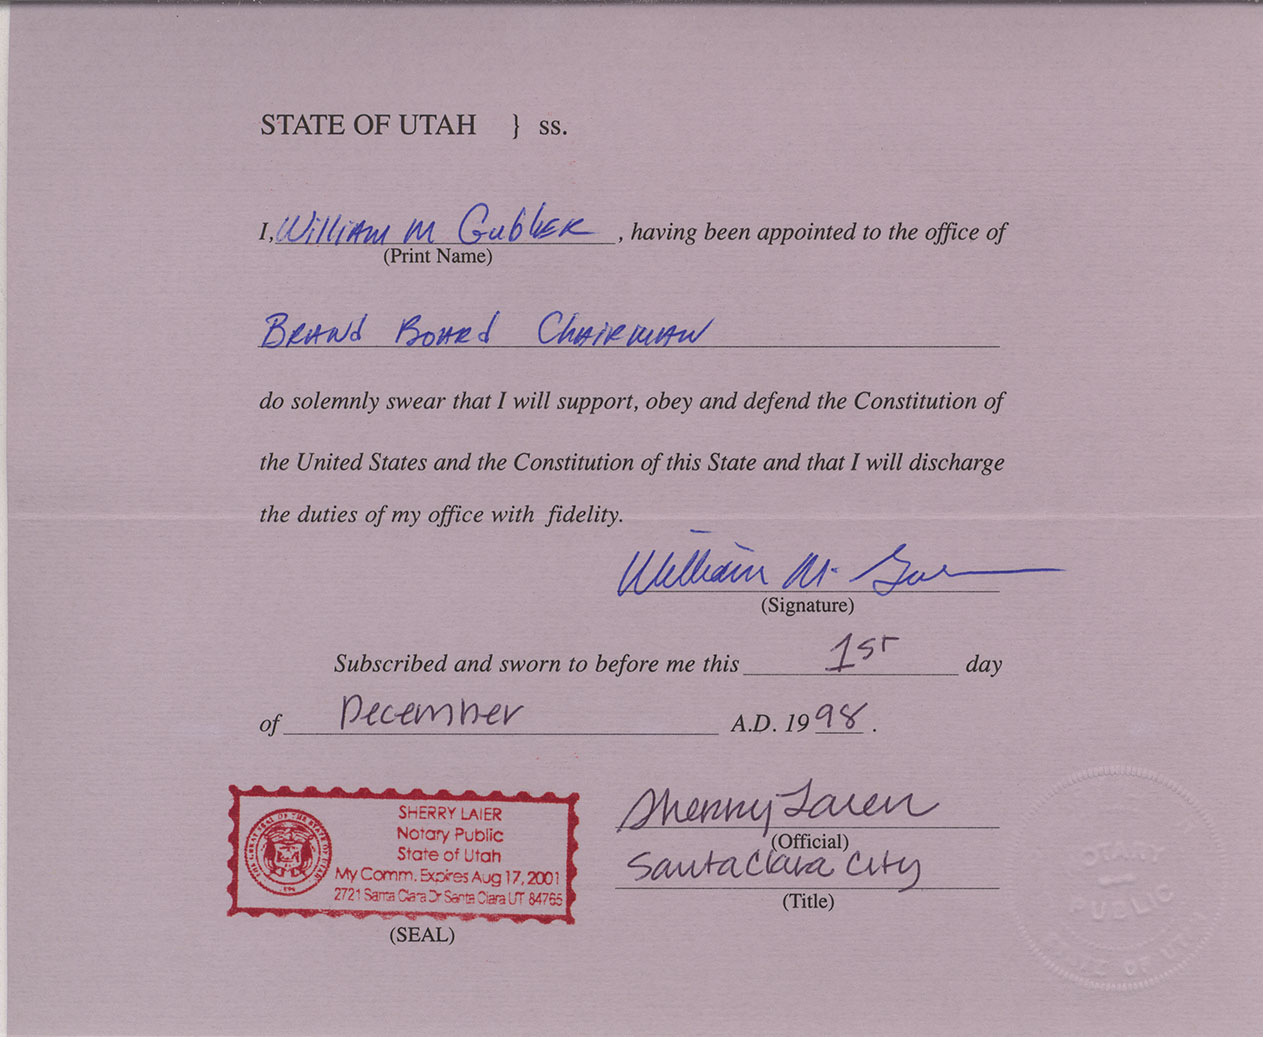 STATE OF UTAH } ss.
I, William M Gubler, having been appointed to the office of
(Print Name)
Brand Board Chairman
do solemnly swear that I will support, obey and defend the Constitution of
the United States and the Constitution of this State and that I will discharge
the duties of my office with fidelity.
William M. Gubler
(Signature)
Subscribed and sworn to before me this 1st day
of December A.D. 1998.
SHERRY LAIER
Notary Public
State of Utah
My Comm. Expires Aug 17, 2001
2721 Santa Clara Dr Santa Clara UT 84765
THE GREAT SEAL OF THE STATE OF UTAH
1896
(SEAL)
Sherry Laier
(Official)
Santa Clara City
(Title)
NOTARY
PUBLIC
STATE OF UTAH